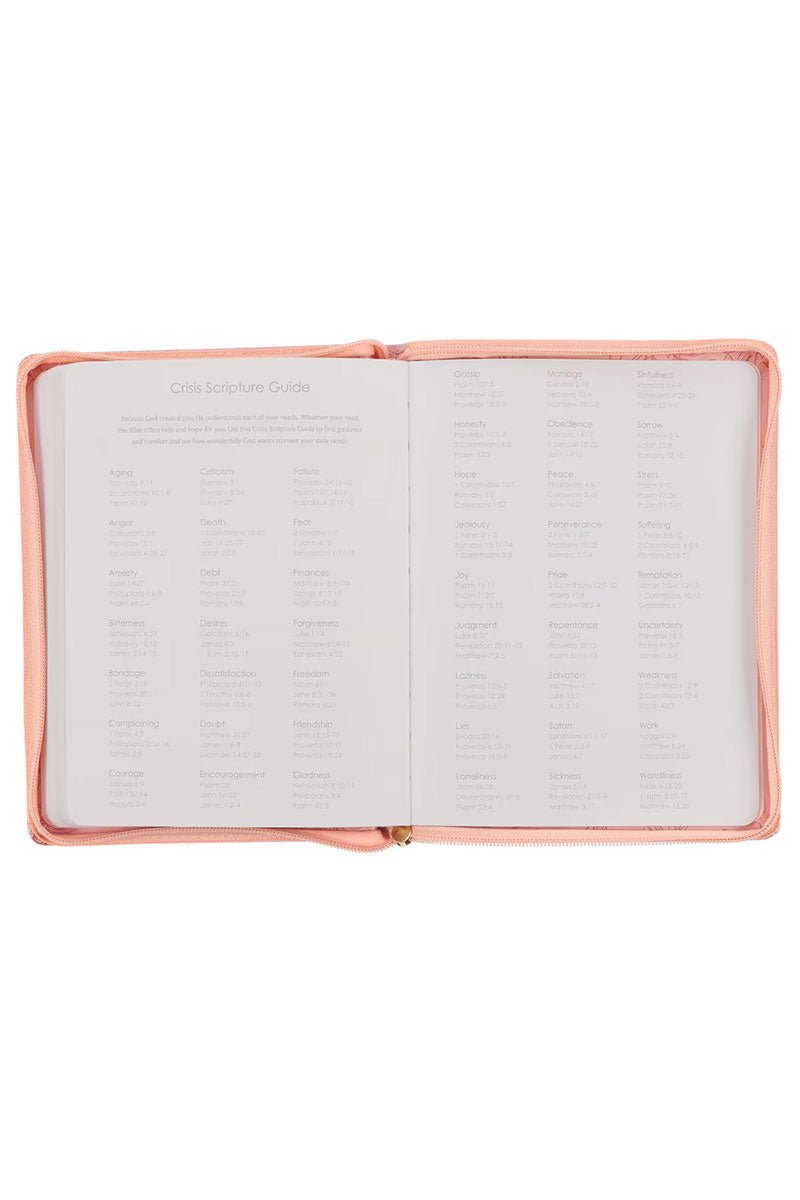 Crisis Scripture Guide
Because God created you, He understands each of your needs. Whatever your need,
the Bible offers help and hope for you. Use this Crisis Scripture Guide to find guidance
and comfort and see how wonderfully God wants to meet your daily needs.
Aging
Proverbs 9:11
Ecclesiastes 12:1-8
Psalm 91:16
Anger
Colossians 3:8
Proverbs 15:1
Ephesians 4:26-27
Anxiety
John 14:27
Philippians 4:6-8
Psalm 46:2-4
Bitterness
Ephesians 4:31
Hebrews 12:15
James 3:14-15
Bondage
2 Peter 2:19
Proverbs 20:1
John 8:32
Complaining
1 Peter 4:9
Philippians 2:14-16
James 5:9
Courage
Joshua 1:9
Psalm 27:14
Haggai 2:4
Criticism
Romans 8:1
Romans 8:34
Luke 6:37
Death
1 Corinthians 15:55
Job 19:25-27
Isaiah 25:8
Debt
Psalm 37:21
Proverbs 22:7
Romans 13:8
Desires
Galatians 5:16
James 4:3
1 John 2:15-17
Dissatisfaction
Philippians 4:11-13
1 Timothy 6:6-8
Hebrews 13:5-6
Doubt
Matthew 21:21
James 1:6-8
Matthew 14:27-33
Encouragement
Psalm 23
John 16:33
James 1:2-4
Failure
Proverbs 24:16-18
Psalm 145:14-16
Habakkuk 3:17-18
Fear
2 Timothy 1:7
1 John 4:18
Revelation 1:17-18
Finances
Matthew 6:31-34
James 4:13-17
Mark 10:17-31
Forgiveness
Luke 11:4
Matthew 6:14-15
Ephesians 4:32
Freedom
Isaiah 61:1
John 8:31-36
Romans 6:22
Friendship
John 15:13-17
Proverbs 17:17
Proverbs 18:24
Gladness
Nehemiah 8:10-11
Philippians 4:4
Psalm 42:5
Gossip
Psalm 101:5
Matthew 12:37
Proverbs 18:2-9
Honesty
Proverbs 11:1-3
2 Corinthians 4:2
Psalm 52:2
Hope
1 Corinthians 13:7
Romans 5:2
Colossians 1:27
Jealousy
1 Peter 2:1-2
Romans 13:11-14
1 Corinthians 3:3
Joy
Psalm 16:11
Psalm
Romans 15:13
Judgment
Luke 6:37
Revelation 20:11-15
Matthew 7:2-5
Laziness
Proverbs 10:4-5
Proverbs 12:24
Proverbs 6:6
Lies
Exodus 20:16
Proverbs 6:12-19
Proverbs 19:5-9
Loneliness
John 14:18
Deuteronomy 31:8
Psalm 23:4
Marriage
Genesis 2:18
Hebrews 13:4
Matthew 19:3-6
Obedience
Romans 14:17
1 Samuel 15:22
John 14:15
Peace
Philippians 4:6-7
Colossians 3:15
John 14:27
Perseverance
2 Peter 1:5-7
Matthew 10:22
Romans 5:3-4
Pride
2 Corinthians 12:7-10
Hosea 13:6
Matthew 18:2-4
Repentance
John 6:37
Proverbs 28:13
Psalm 51:11-13
Salvation
Matthew 4:17
Luke 15:7
Acts 3:19
Satan
Ephesians 6:11-17
1 Peter 5:8-9
James 4:7
Sickness
James 5:14
Revelation 21:3-4
Matthew 8:17
Sinfulness
Romans 6:6-9
Ephesians 4:22-24
Psalm 25:6-8
Sorrow
Matthew 5:4
Isaiah 25:8
Romans 12:15
Stress
Psalm 9:10
Psalm 73:26
Psalm 91:7-11
Suffering
1 Peter 5:8-10
2 Corinthians 4:8-9
Romans 8:18-21
Temptation
James 1:2-4, 12-13
1 Corinthians 10:13
Galatians 6:1
Uncertainty
Proverbs 16:3
Psalm 91:3-7
James 1:6-8
Weakness
2 Corinthians 12:9
2 Corinthians 13:4
Isaiah 42:3
Work
Haggai 2:4
Matthew 6:24
Colossians 3:23
Worldliness
Mark 4:18-20
1 John 2:15-17
Matthew 16:26